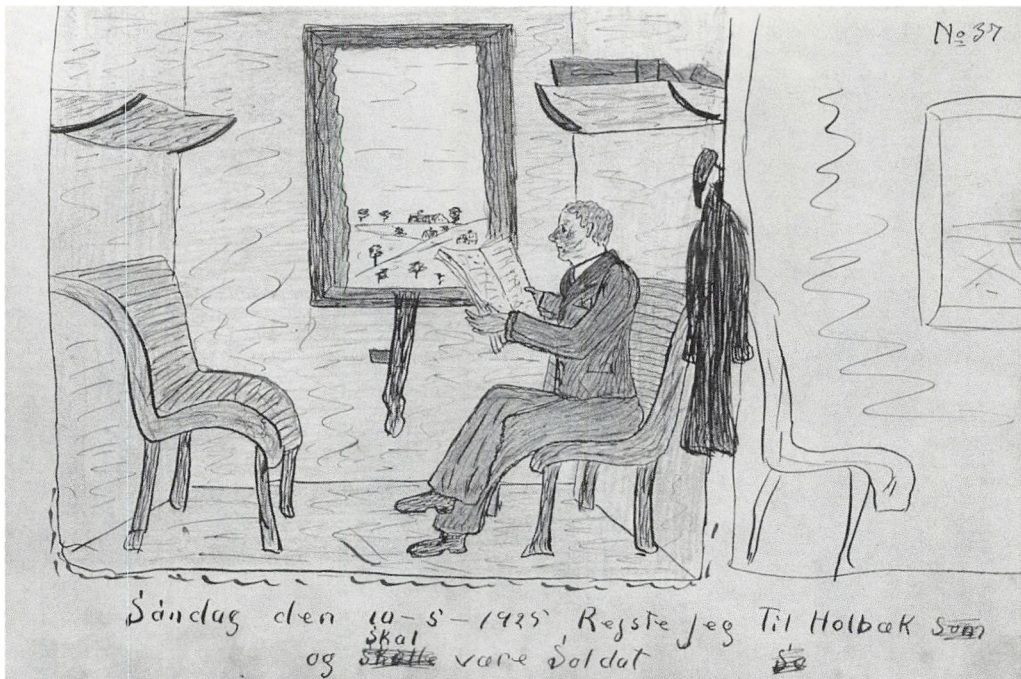 No 37
Søndag den 10-5-1925 Rejste jeg Til Holbæk som
skal
og skulle være Soldat